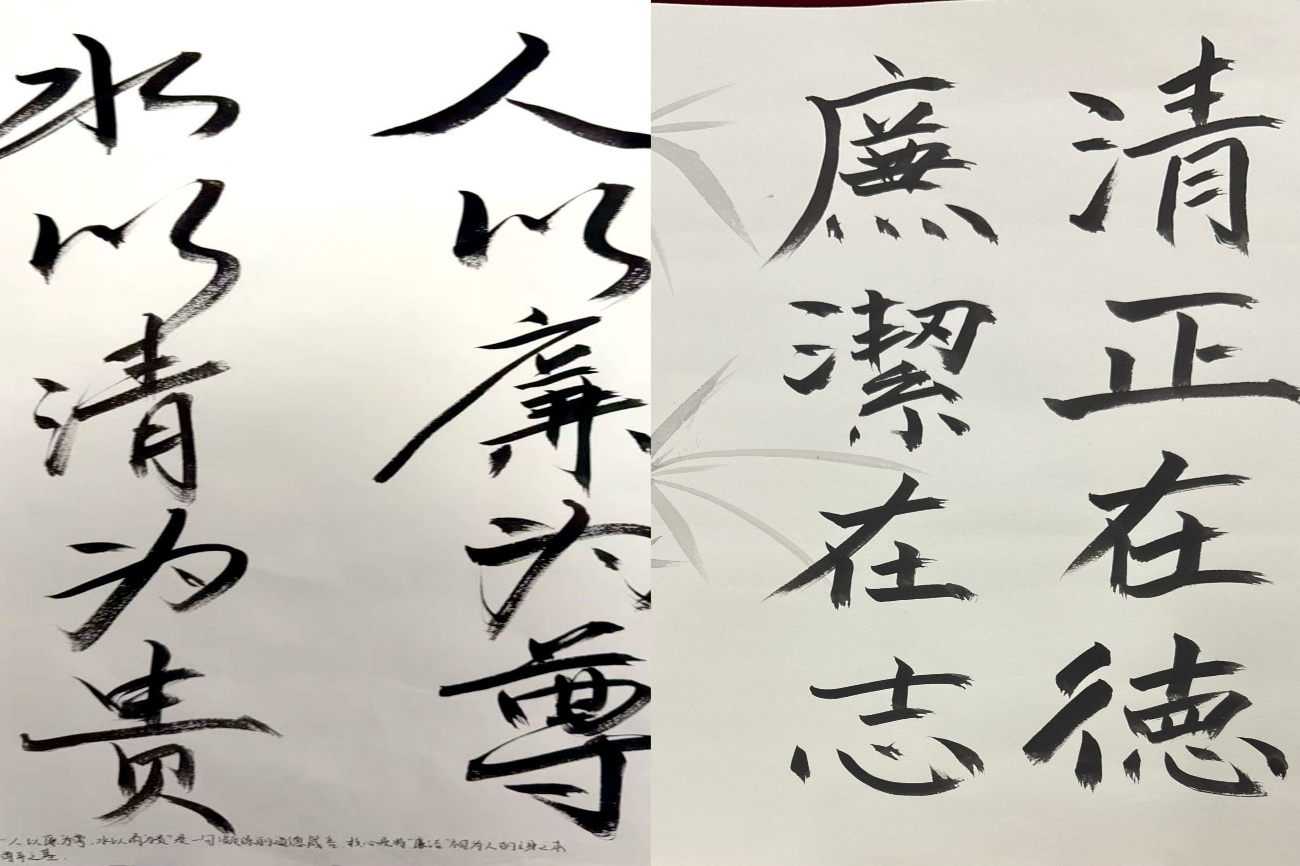 人以廉为尊
水以清为贵
"人以廉为尊,水以清为贵"是一句
清正在德
廉潔在志